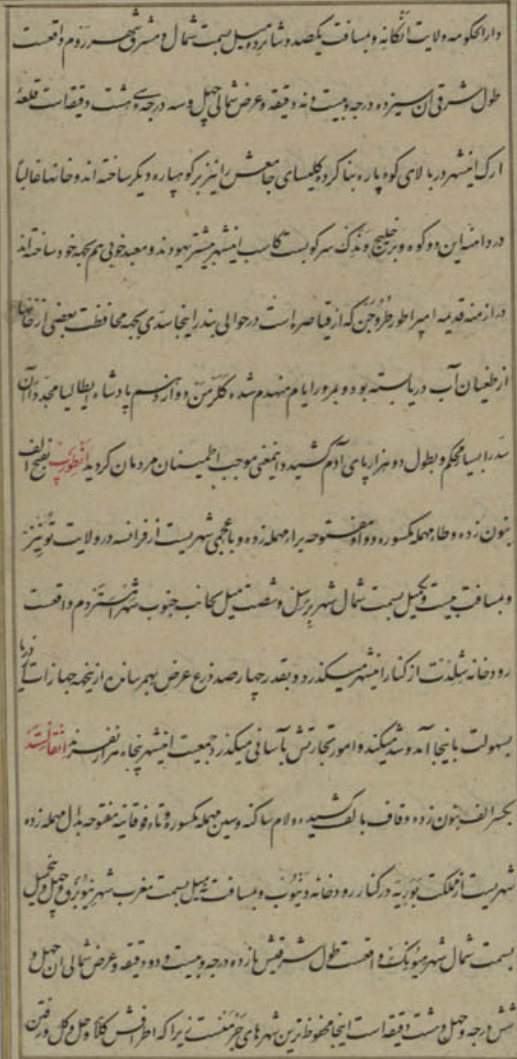 دارالحکومه ولایت انکانه و بمسافت یکصد و شانزده میل بسمت شمال و مشرق شهر روم واقعست
طول شرقی آن سیزده درجه و بیست و نه دقیقه و عرض شمالی چهل و سه درجه و سی هشت دقیقه است قلعهٔ
ارک اینشهر در بالای کوه پاره بنا کرده کلیسای جامعش را نیز بر کوهپاره دیگر ساخته اند و خانها غالباً
در دامنه این دو کوه و بر خلیج ونیک سرکوبست کاسب اینشهر بیشتر یهودند و معبد خوبی هم بجهه خود ساخته اند
در ازمنه قدیمه امپراطور طروجن که از قیاصره است در حوالی بندر اینجا سدی بجهه محافظت بعضی از خانها
از طغیان آب دریا بسته بود و بمرور ایام منهدم شده کلرمن دوازدهم پادشاه ایطالیا مجدداً آن
سد را بسیار محکم و بطول دو هزار پای آدم کشیده اینمعنی موجب اطمینان مردمان کردید انطورپ بفتح الف
بنون زده و طا مهمله مکسوره و واو مفتوحه براء مهمله زده و با عجمی شهریست از فرانسه در ولایت
و بمسافت بیست و یکمیل بسمت شمال شهر برسل و شصت میل بجانب جنوب شهر امستردم واقعست
رودخانه شلدت از کنار اینشهر میکذرد و بقدر چهار صد ذرع عرض بهم رسانده ازینجهه جهازات دریا
بسهولت باینجا آمد و شد میکند و امور تجارتش بآسانی میکذرد جمعیت اینشهر پنجاه هزار نفرند
بکسر الف بنون زده و قاف با لف کشیده و لام ساکنه و سین مهمله مکسوره و تاء فوقانیه مفتوحه بدال مهمله زده
شهریست از مملکت بوریه در کنار رودخانه دنیوب و بمسافت میل بسمت مغرب شهر نیوبرق و چهل و پنجمیل
بسمت شمال شهر میونک واقعست طول شرقیش یازده درجه و بیست و دو دقیقه و عرض شمالی آن چهل و
شش درجه و چهل و شت دقیقه است اینجا محفوظ ترین شهرهای جرمنست زیرا که اطرافش کلاً وحل و کل و رفتن